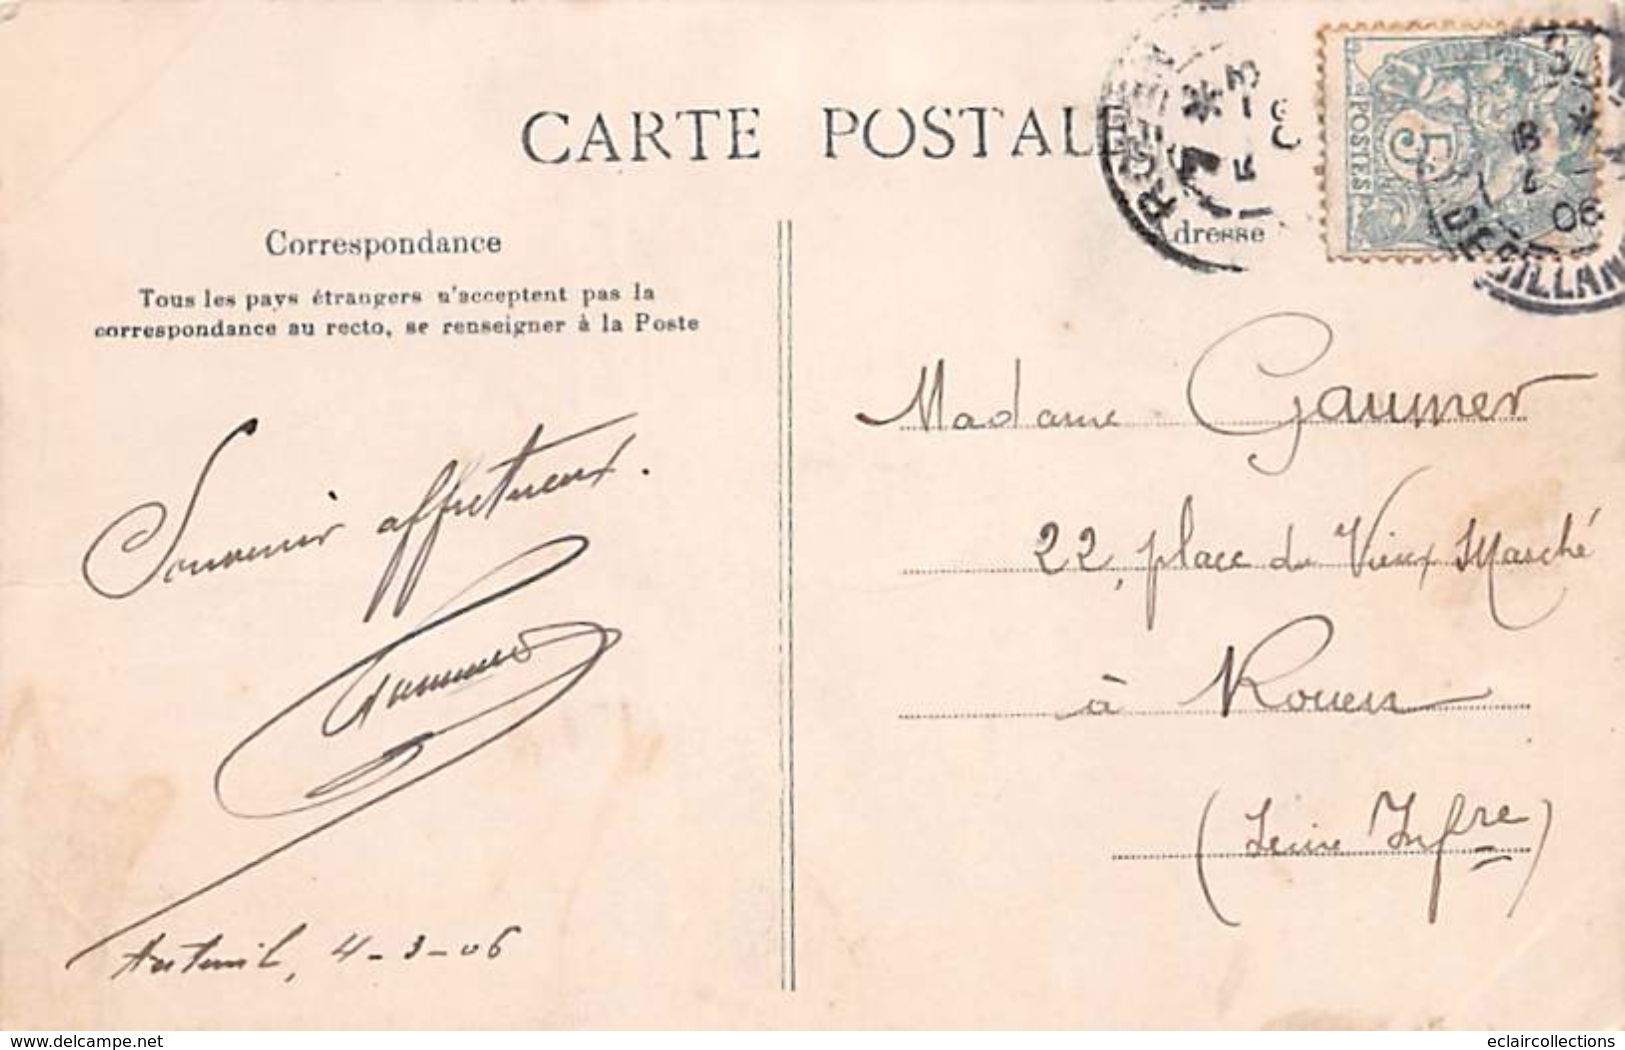 CARTE POSTALE
Correspondance
Tous les pays étrangers n'acceptent pas la
correspondance au recto, se renseigner à la Poste
Adresse
POSTES
5
ROUEN
06
Souvenir affectueux.
Auteuil, 4-3-06
Madame Gaumer
22, place du Vieux Marché
à Rouen
(Seine Infre)
delcampe.net
eclaircollections